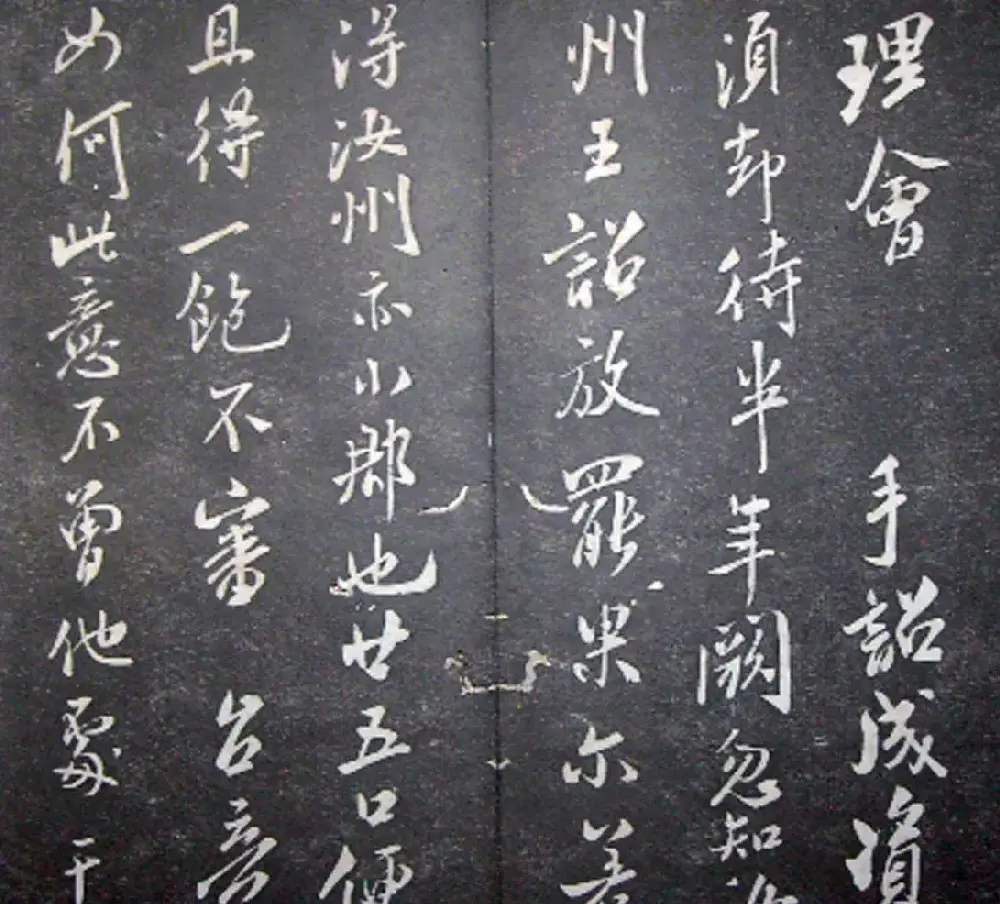 理會 手詔成資
湏却待半年闕忽知
州王詔放罷果尓若
淂汝州亦小郡也廿五口便
且得一飽不審 台意
如何此意不曾他處 干